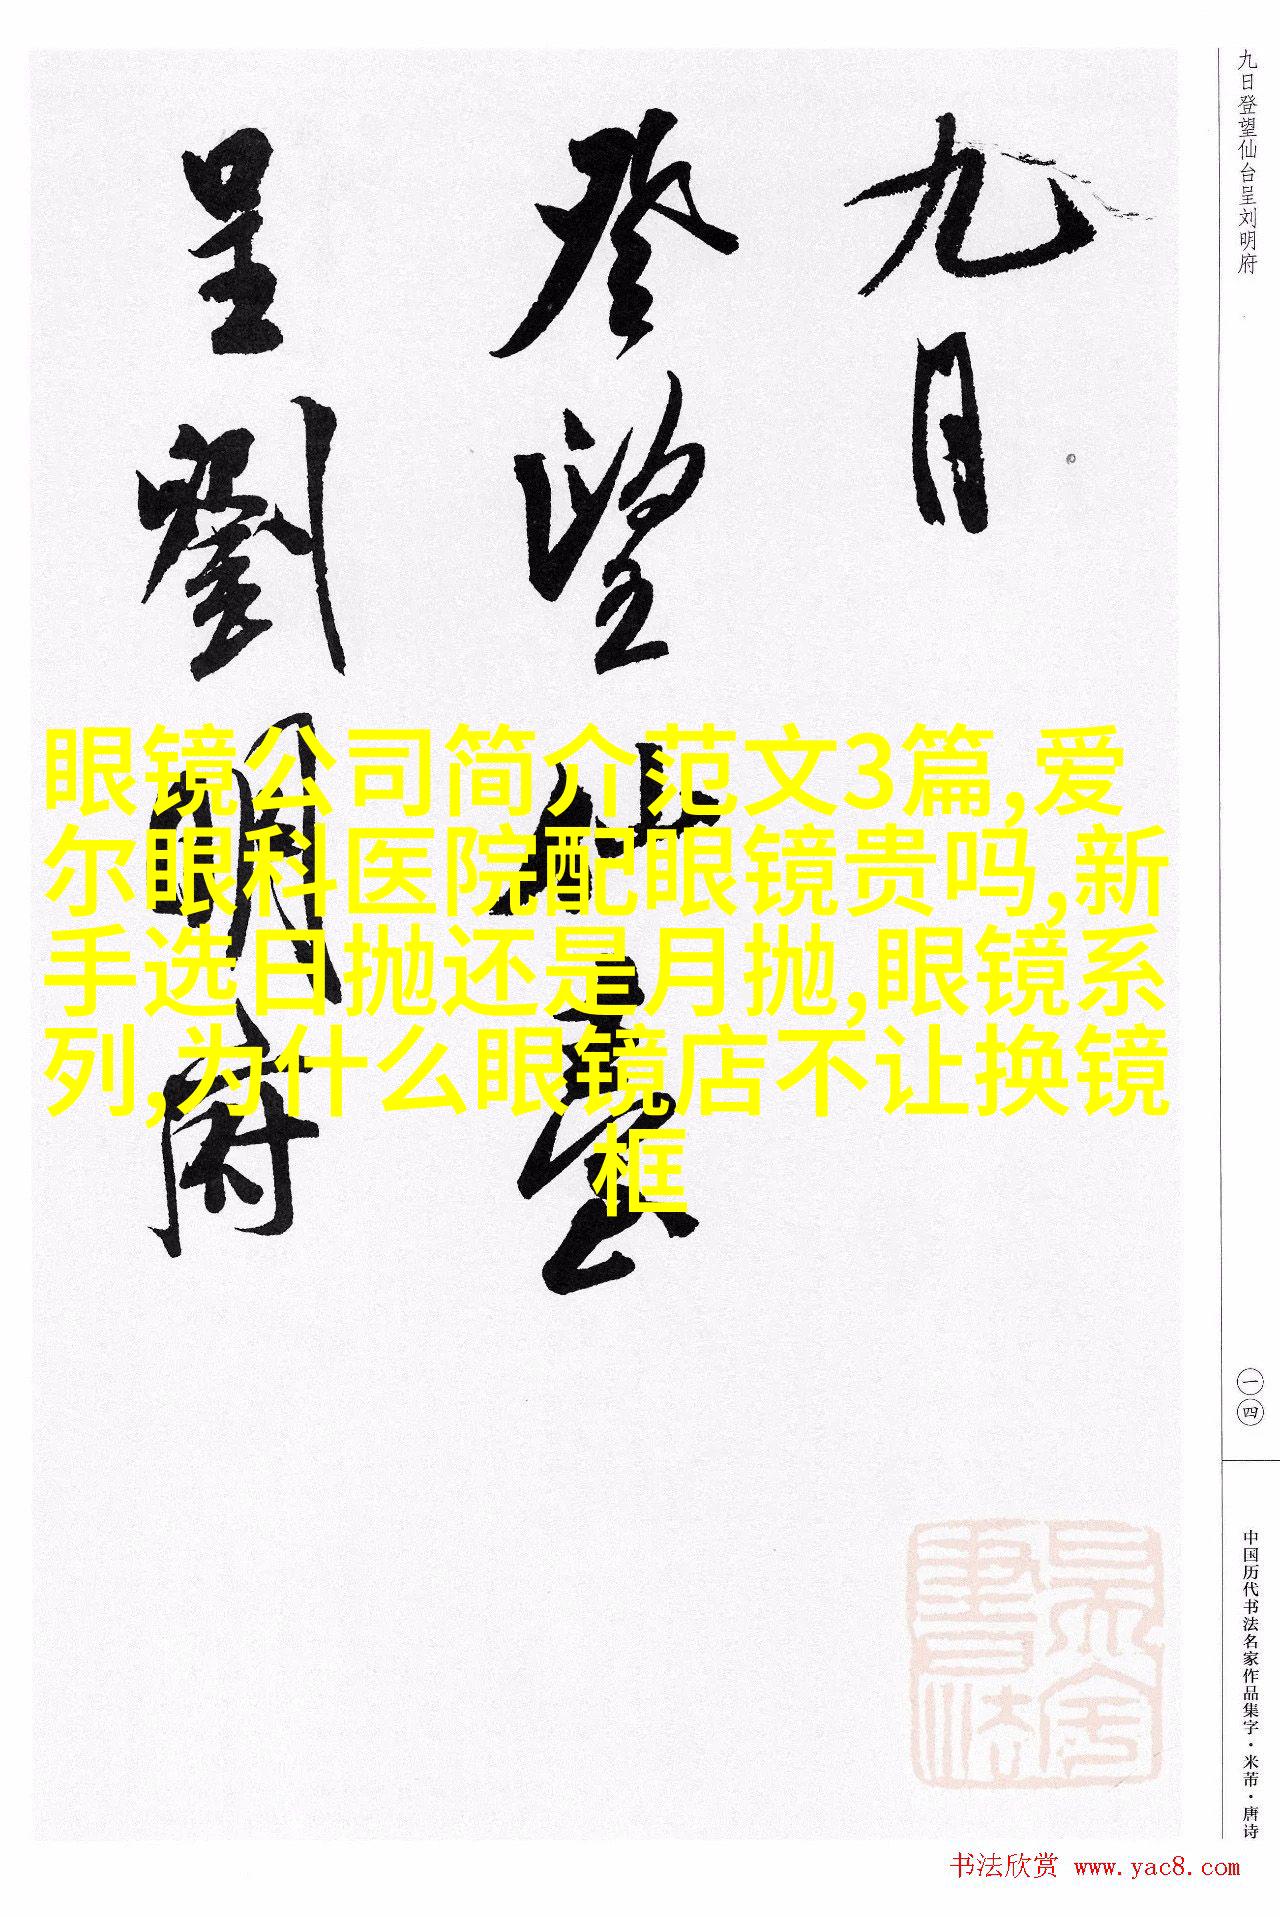 九日
登望仙臺
呈劉明府
九日登望仙台呈刘明府
一四
中国历代书法名家作品集字·米芾·唐诗
眼镜公司简介范文3篇,爱
尔眼科医院配眼镜贵吗,新
手选日抛还是月抛,眼镜系
列,为什么眼镜店不让换镜
框
书法欣赏 www.yac8.com